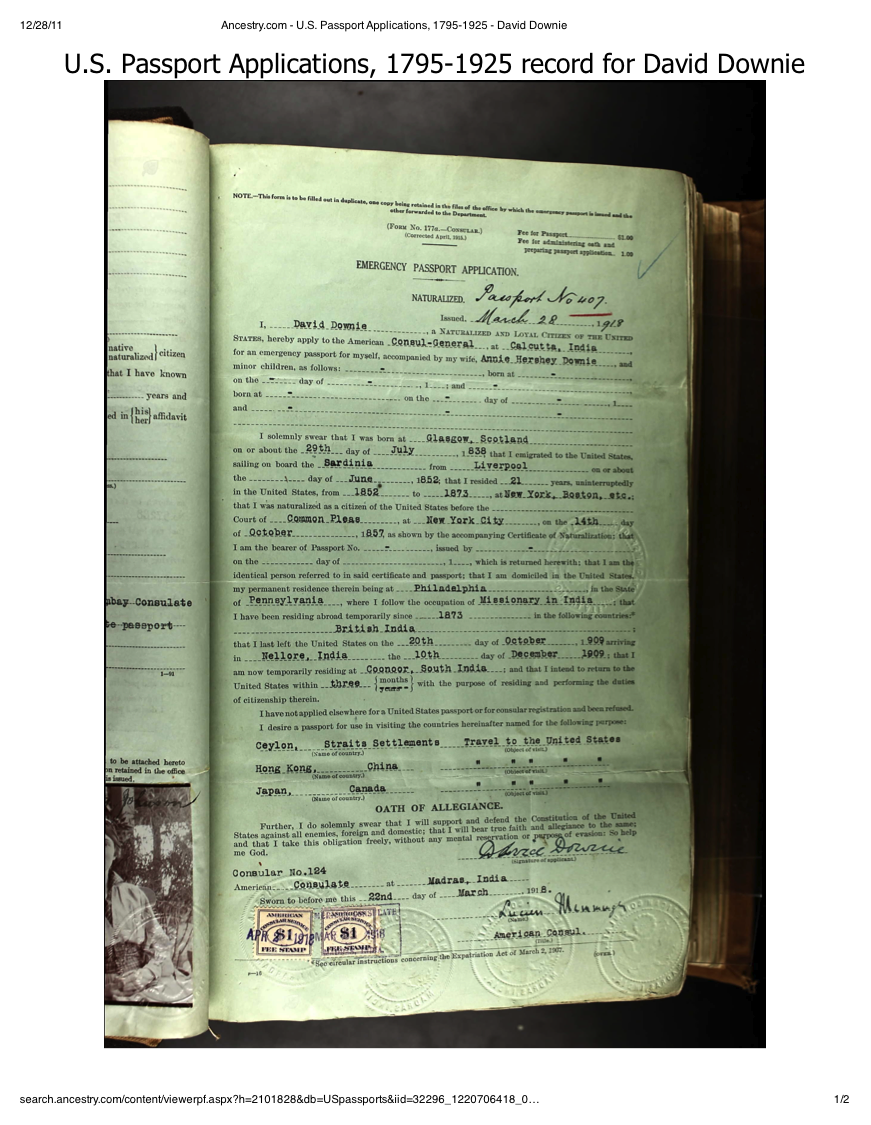 12/28/11 Ancestry.com - U.S. Passport Applications, 1795-1925 - David Downie
U.S. Passport Applications, 1795-1925 record for David Downie
NOTE.—This form is to be filled out in duplicate, one copy being retained in the files of the office by which the emergency passport is issued and the
other forwarded to the Department.
(FORM No. 177a.—CONSULAR.)
(Corrected April, 1915.)
Fee for Passport $1.00
Fee for administering oath and
preparing passport application.. 1.00
EMERGENCY PASSPORT APPLICATION.
NATURALIZED. Passport No 407.
Issued, March 28, 1918
I, David Downie, a NATURALIZED AND LOYAL CITIZEN OF THE UNITED
STATES, hereby apply to the American Consul-General at Calcutta, India
for an emergency passport for myself, accompanied by my wife, Annie Hershey Downie, and
minor children, as follows: - born at -
on the - day of -, 1; and -
born at - on the - day of -, 1
and - - -
I solemnly swear that I was born at Glasgow, Scotland
on or about the 29th day of July, 1838 that I emigrated to the United States,
sailing on board the Sardinia from Liverpool on or about
the day of June, 1852; that I resided 21 years, uninterruptedly
in the United States, from 1852 to 1873, at New York, Boston, etc.;
that I was naturalized as a citizen of the United States before the
Court of Common Pleas, at New York City, on the 14th day
of October, 1857, as shown by the accompanying Certificate of Naturalization; that
I am the bearer of Passport No. -, issued by -
on the day of, 1, which is returned herewith; that I am the
identical person referred to in said certificate and passport; that I am domiciled in the United States,
my permanent residence therein being at Philadelphia, in the State
of Pennsylvania, where I follow the occupation of Missionary in India; that
I have been residing abroad temporarily since 1873 in the following countries:*
British India;
that I last left the United States on the 20th day of October 1909 arriving
in Nellore, India the 10th day of December 1909; that I
am now temporarily residing at Coonoor, South India; and that I intend to return to the
United States within three {months years} with the purpose of residing and performing the duties
of citizenship therein.
I have not applied elsewhere for a United States passport or for consular registration and been refused.
I desire a passport for use in visiting the countries hereinafter named for the following purpose:
Ceylon, Straits Settlements Travel to the United States
(Name of country.) (Object of visit.)
Hong Kong, China " " " " "
(Name of country.) (Object of visit.)
Japan, Canada " " " " "
(Name of country.) (Object of visit.)
OATH OF ALLEGIANCE.
Further, I do solemnly swear that I will support and defend the Constitution of the United
States against all enemies, foreign and domestic; that I will bear true faith and allegiance to the same;
and that I take this obligation freely, without any mental reservation or purpose of evasion: So help
me God.
David Downie
(Signature of applicant.)
Consular No.124
American Consulate at Madras, India
Sworn to before me this 22nd day of March, 1918.
(Name.)
American Consul.
(Title.)
AMERICAN CONSULAR SERVICE $1 FEE STAMP
AMERICAN CONSULAR SERVICE $1 FEE STAMP
*See circular instructions concerning the Expatriation Act of March 2, 1907. (OVER.)
native
naturalized} citizen
that I have known
years and
ed in {his her} affidavit
mbay Consulate
te passport
1—91
to be attached hereto
n retained in the office
is issued.
search.ancestry.com/content/viewerpf.aspx?h=2101828&db=USpassports&iid=32296_1220706418_0… 1/2